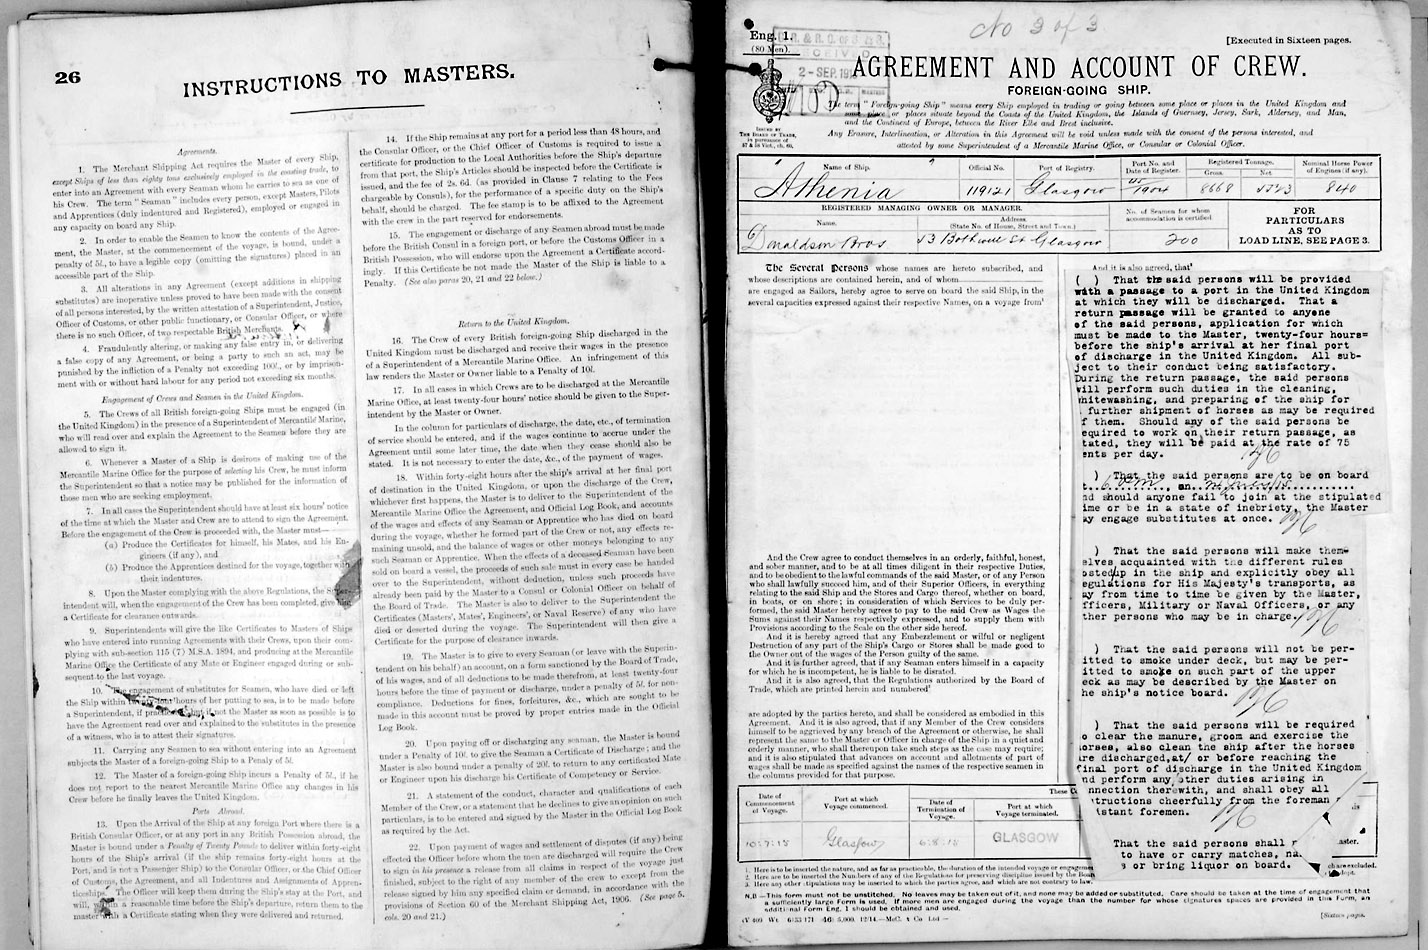 26
INSTRUCTIONS TO MASTERS.
Agreements.
1. The Merchant Shipping Act requires the Master of every Ship,
except Ships of less than eighty tons exclusively employed in the coasting trade, to
enter into an Agreement with every Seaman whom he carries to sea as one of
his Crew. The term "Seaman" includes every person, except Masters, Pilots
and Apprentices (duly indentured and Registered), employed or engaged in
any capacity on board any Ship.
2. In order to enable the Seamen to know the contents of the Agree-
ment, the Master, at the commencement of the voyage, is bound, under a
penalty of 5l., to have a legible copy (omitting the signatures) placed in an
accessible part of the Ship.
3. All alterations in any Agreement (except additions in shipping
substitutes) are inoperative unless proved to have been made with the consent
of all persons interested, by the written attestation of a Superintendent, Justice,
Officer of Customs, or other public functionary, or Consular Officer, or where
there is no such Officer, of two respectable British Merchants.
4. Fraudulently altering, or making any false entry in, or delivering
a false copy of any Agreement, or being a party to such an act, may be
punished by the infliction of a Penalty not exceeding 100l., or by imprison-
ment with or without hard labour for any period not exceeding six months.
Engagement of Crews and Seamen in the United Kingdom.
5. The Crews of all British foreign-going Ships must be engaged (in
the United Kingdom) in the presence of a Superintendent of Mercantile Marine,
who will read over and explain the Agreement to the Seamen before they are
allowed to sign it.
6. Whenever a Master of a Ship is desirous of making use of the
Mercantile Marine Office for the purpose of selecting his Crew, he must inform
the Superintendent so that a notice may be published for the information of
those men who are seeking employment.
7. In all cases the Superintendent should have at least six hours' notice
of the time at which the Master and Crew are to attend to sign the Agreement.
Before the engagement of the Crew is proceeded with, the Master must—
(a) Produce the Certificates for himself, his Mates, and his En-
gineers (if any), and
(b) Produce the Apprentices destined for the voyage, together with
their indentures.
8. Upon the Master complying with the above Regulations, the Super-
intendent will, when the engagement of the Crew has been completed, give him
a Certificate for clearance outwards.
9. Superintendents will give the like Certificates to Masters of Ships
who have entered into running Agreements with their Crews, upon their com-
plying with sub-section 115 (7) M.S.A. 1894, and producing at the Mercantile
Marine Office the Certificate of any Mate or Engineer engaged during or sub-
sequent to the last voyage.
10. The engagement of substitutes for Seamen, who have died or left
the Ship within hours of her putting to sea, is to be made before
a Superintendent, if practicable, but if not the Master as soon as possible is to
have the Agreement read over and explained to the substitutes in the presence
of a witness, who is to attest their signatures.
11. Carrying any Seamen to sea without entering into an Agreement
subjects the Master of a foreign-going Ship to a Penaly of 5l.
12. The Master of a foreign-going Ship incurs a Penalty of 5l., if he
does not report to the nearest Mercantile Marine Office any changes in his
Crew before he finally leaves the United Kingdom.
Ports Abroad.
13. Upon the Arrival of the Ship at any foreign Port where there is a
British Consular Officer, or at any port in any British Possession abroad, the
Master is bound under a Penalty of Twenty Pounds to deliver within forty-eight
hours of the Ship's arrival (if the ship remains forty-eight hours at the
Port, and is not a Passenger Ship) to the Consular Officer, or the Chief Officer
of Customs, the Agreement, and all Indentures and Assignments of Appren-
ticeships. The Officer will keep them during the Ship's stay at the Port, and
will, within a reasonable time before the Ship's departure, return them to the
master with a Certificate stating when they were delivered and returned.
14. If the Ship remains at any port for a period less than 48 hours, and
the Consular Officer, or the Chief Officer of Customs is required to issue a
certificate for production to the Local Authorities before the Ship's departure
from that port, the Ship's Articles should be inspected before the Certificate is
issued, and the fee of 2s. 6d. (as provided in Clause 7 relating to the Fees
chargeable by Consuls), for the performance of a specific duty on the Ship's
behalf, should be charged. The fee stamp is to be affixed to the Agreement
with the crew in the part reserved for endorsements.
15. The engagement or discharge of any Seamen abroad must be made
before the British Consul in a foreign port, or before the Customs Officer in a
British Possession, who will endorse upon the Agreement a Certificate accord-
ingly. If this Certificate be not made the Master of the Ship is liable to a
Penalty. (See also paras 20, 21 and 22 below.)
Return to the United Kingdom.
16. The Crew of every British foreign-going Ship discharged in the
United Kingdom must be discharged and receive their wages in the presence
of a Superintendent of a Mercantile Marine Office. An infringement of this
law renders the Master or Owner liable to a Penalty of 10l.
17. In all cases in which Crews are to be discharged at the Mercantile
Marine Office, at least twenty-four hours' notice should be given to the Super-
intendent by the Master or Owner.
In the column for particulars of discharge, the date, etc., of termination
of service should be entered, and if the wages continue to accrue under the
Agreement until some later time, the date when they cease should also be
stated. It is not necessary to enter the date, &c., of the payment of wages.
18. Within forty-eight hours after the ship's arrival at her final port
of destination in the United Kingdom, or upon the discharge of the Crew,
whichever first happens, the Master is to deliver to the Superintendent of the
Mercantile Marine Office the Agreement, and Official Log Book, and accounts
of the wages and effects of any Seaman or Apprentice who has died on board
during the voyage, whether he formed part of the Crew or not, any effects re-
maining unsold, and the balance of wages or other moneys belonging to any
such Seaman or Apprentice. When the effects of a deceased Seaman have been
sold on board a vessel, the proceeds of such sale must in every case be handed
over to the Superintendent, without deduction, unless such proceeds have
already been paid by the Master to a Consul or Colonial Officer on behalf of
the Board of Trade. The Master is also to deliver to the Superintendent the
Certificates (Masters', Mates', Engineers', or Naval Reserve) of any who have
died or deserted during the voyage. The Superintendent will then give a
Certificate for the purpose of clearance inwards.
19. The Master is to give to every Seaman (or leave with the Superin-
tendent on his behalf) an account, on a form sanctioned by the Board of Trade,
of his wages, and of all deductions to be made therefrom, at least twenty-four
hours before the time of payment or discharge, under a penalty of 5l. for non-
compliance. Deductions for fines, forfeitures, &c., which are sought to be
made in this account must be proved by proper entries made in the Official
Log Book.
20. Upon paying off or discharging any seaman, the Master is bound
under a Penalty of 10l. to give the Seaman a Certificate of Discharge; and the
Master is also bound under a penalty of 20l. to return to any certificated Mate
or Engineer upon his discharge his Certificate of Competency or Service.
21. A statement of the conduct, character and qualifications of each
Member of the Crew, or a statement that he declines to give an opinion on such
particulars, is to be entered and signed by the Master in the Official Log Book
as required by the Act.
22. Upon payment of wages and settlement of disputes (if any) being
effected the Officer before whom the men are discharged will require the Crew
to sign in his presence a release from all claims in respect of the voyage just
finished, subject to the right of any member of the crew to except from the
release signed by him any specified claim or demand, in accordance with the
provisions of Section 60 of the Merchant Shipping Act, 1906. (See page 5,
cols. 20 and 21.)
No 3 of 3
Eng. 1.
(80 Men).
2-SEP.191
[Executed in Sixteen pages.
AGREEMENT AND ACCOUNT OF CREW.
FOREIGN-GOING SHIP.
ISSUED BY
THE BOARD OF TRADE,
in pursuance of
57 & 58 Vict., ch. 60.
The term "Foreign-going Ship" means every Ship employed in trading or going between some place or places in the United Kingdom and
some place or places situate beyond the Coasts of the United Kingdom, the Islands of Guernsey, Jersey, Sark, Alderney, and Man,
and the Continent of Europe, between the River Elbe and Brest inclusive.
Any Erasure, Interlineation, or Alteration in this Agreement will be void unless made with the consent of the persons interested, and
attested by some Superintendent of a Mercantile Marine Office, or Consular or Colonial Officer.
Name of Ship. Official No. Port of Registry. Port No. and Date of Register. Registered Tonnage. Gross. Net. Nominal Horse Power of Engines (if any).
"Athenia" 119121 Glasgow 1904 8668 5523 840
REGISTERED MANAGING OWNER OR MANAGER.
Name. Address. (State No. of House, Street and Town.) No. of Seamen for whom accommodation is certified.
Donaldson Bros 53 Bothwell St Glasgow 200
FOR
PARTICULARS
AS TO
LOAD LINE, SEE PAGE 3.
The Several Persons whose names are hereto subscribed, and
whose descriptions are contained herein, and of whom
are engaged as Sailors, hereby agree to serve on board the said Ship, in the
several capacities expressed against their respective Names, on a voyage from¹
And the Crew agree to conduct themselves in an orderly, faithful, honest,
and sober manner, and to be at all times diligent in their respective Duties,
and to be obedient to the lawful commands of the said Master, or of any Person
who shall lawfully succeed him, and of their Superior Officers, in everything
relating to the said Ship and the Stores and Cargo thereof, whether on board,
in boats, or on shore; in consideration of which Services to be duly per-
formed, the said Master hereby agrees to pay to the said Crew as Wages the
Sums against their Names respectively expressed, and to supply them with
Provisions according to the Scale on the other side hereof.
And it is hereby agreed that any Embezzlement or wilful or negligent
Destruction of any part of the Ship's Cargo or Stores shall be made good to
the Owner out of the Wages of the Person guilty of the same.
And it is further agreed, that if any Seaman enters himself in a capacity
for which he is incompetent, he is liable to be disrated.
And it is also agreed, that the Regulations authorized by the Board of
Trade, which are printed herein and numbered²
are adopted by the parties hereto, and shall be considered as embodied in this
Agreement. And it is also agreed, that if any Member of the Crew considers
himself to be aggrieved by any breach of the Agreement or otherwise, he shall
represent the same to the Master or Officer in charge of the Ship in a quiet and
orderly manner, who shall thereupon take such steps as the case may require;
and it is also stipulated that advances on account and allotments of part of
wages shall be made as specified against the names of the respective seamen in
the columns provided for that purpose.
And it is also agreed, that³
( ) That the said persons will be provided
with a passage to a port in the United Kingdom
at which they will be discharged. That a
return passage will be granted to anyone
of the said persons, application for which
must be made to the Master, twenty-four hours=
before the ship's arrival at her final port
of discharge in the United Kingdom. All sub-
ject to their conduct being satisfactory.
During the return passage, the said persons
will perform such duties in the cleaning,
hitewashing, and preparing of the ship for
further shipment of horses as may be required
f them. Should any of the said persons be
equired to work on their return passage, as
tated, they will be paid at the rate of 75
ents per day.
) That the said persons are to be on board
nd should anyone fail to join at the stipulated
ime or be in a state of inebriety, the Master
ay engage substitutes at once.
) That the said persons will make them-
elves acquainted with the different rules
osted up in the ship and explicitly obey all
egulations for His Majesty's transports, as
ay from time to time be given by the Master,
fficers, Military or Naval Officers, or any
ther persons who may be in charge.
) That the said persons will not be per-
itted to smoke under deck, but may be per-
itted to smoke on such part of the upper
eck as may be described by the Master on
he ship's notice board.
) That the said persons will be required
o clear the manure, groom and exercise the
orses, also clean the ship after the horses
re discharged, at/ or before reaching the
final port of discharge in the United Kingdom
nd perform any other duties arising in
nnection therewith, and shall obey all
tructions cheerfully from the foreman
stant foremen.
That the said persons shall
to have or carry matches, na
or bring liquor on board
Date of Commencement of Voyage. Port at which Voyage commenced. Date of Termination of Voyage. Port at which Voyage terminated.
10.7.15 Glasgow 6.8.15 GLASGOW
1. Here is to be inserted the nature, and as far as practicable, the duration of the intended voyage or engagement
2. Here are to be inserted the Numbers of any of the Regulations for preserving discipline issued by the Board
3. Here any other stipulations may be inserted to which the parties agree, and which are not contrary to law.
N.B.—This form must not be unstitched. No leaves may be taken out of it, and none may be added or substituted. Care should be taken at the time of engagement that
a sufficiently large Form is used. If more men are engaged during the voyage than the number for whose signatures spaces are provided in this Form, an
additional Form Eng. 1 should be obtained and used.
[Sixteen pages.